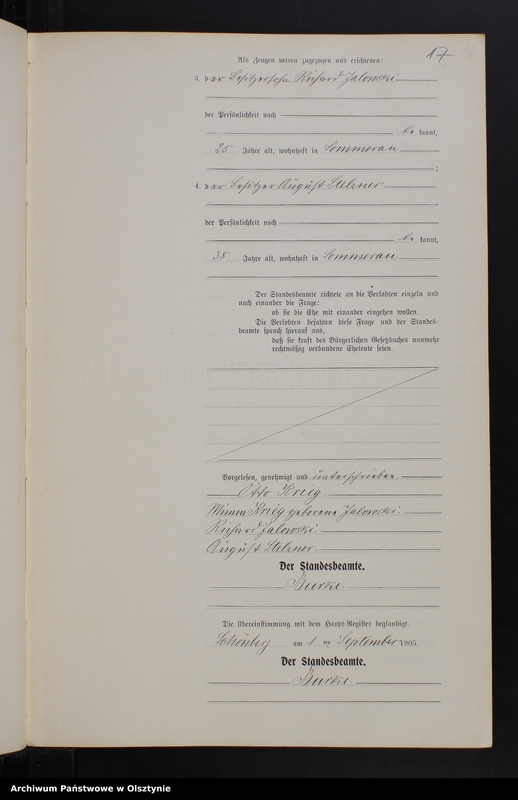 17
Als Zeugen waren zugezogen und erschienen:
3. der Besitzersohn Richard Jalowski
der Persönlichkeit nach
be kannt,
25 Jahre alt, wohnhaft in Sommerau
;
4. der Besitzer August Stelzner
der Persönlichkeit nach
be kannt,
38 Jahre alt, wohnhaft in Sommerau
Der Standesbeamte richtete an die Verlobten einzeln und
nach einander die Frage:
ob sie die Ehe mit einander eingehen wollen.
Die Verlobten bejahten diese Frage und der Standes-
beamte sprach hierauf aus,
daß sie kraft des Bürgerlichen Gesetzbuches nunmehr
rechtmäßig verbundene Eheleute seien.
Vorgelesen, genehmigt und unterschrieben
Otto Krieg.
Minna Krieg geborene Jalowski.
Richard Jalowski.
August Stelzner.
Der Standesbeamte.
Burke.
Die Übereinstimmung mit dem Haupt-Register beglaubigt.
Schönberg am 1 ten September 1905.
Der Standesbeamte.
Burke.
Archiwum Państwowe w Olsztynie